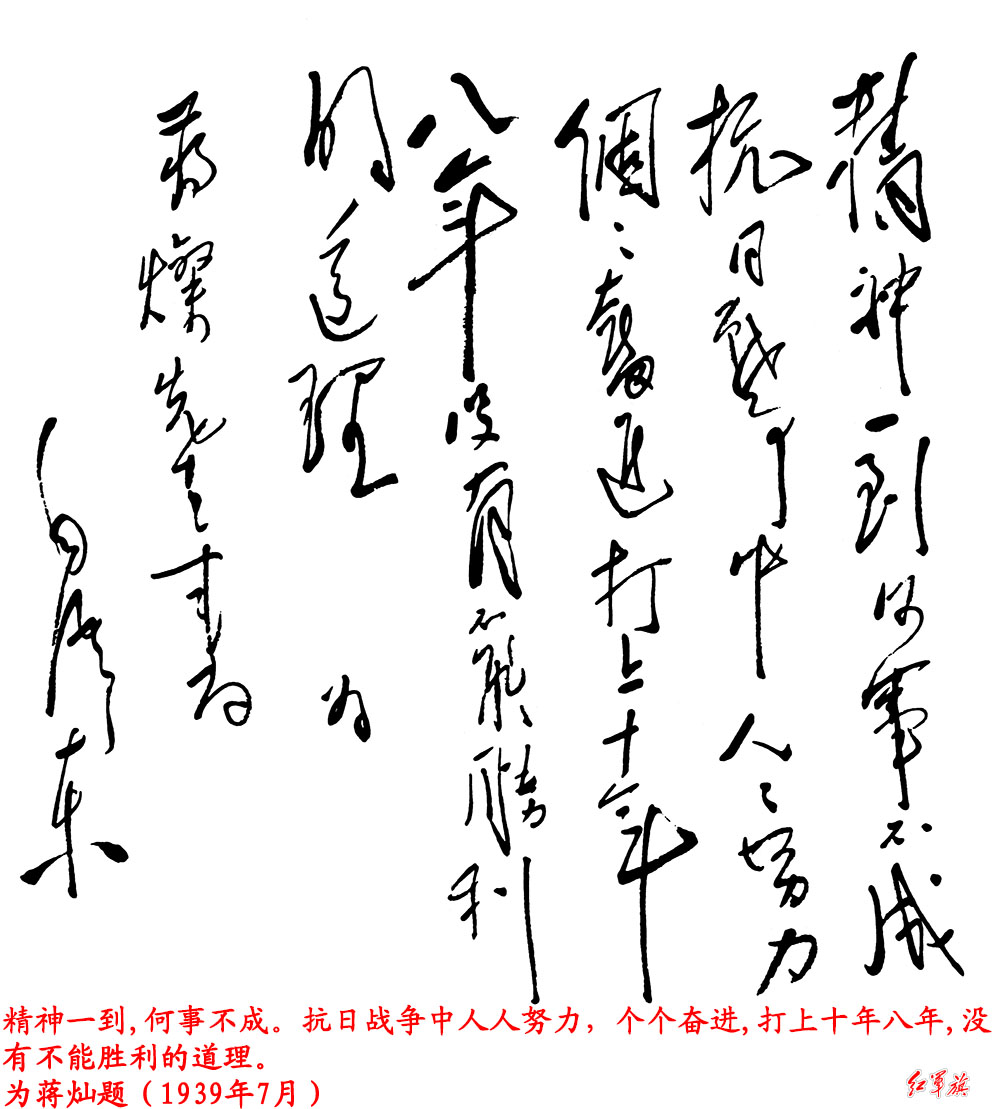 精神一到何事不成
抗日战争中人人努力
個々奮进打上十年
八年没有不能勝利
的道理 为
蒋燦先生书为
毛泽东
精神一到,何事不成。抗日战争中人人努力，个个奋进,打上十年八年,没
有不能胜利的道理。
为蒋灿题（1939年7月）
红军旗